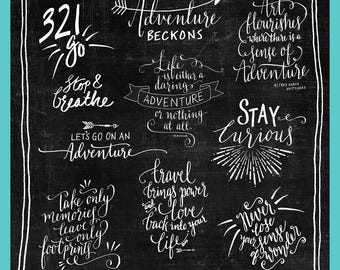 321
go
Adventure
BECKONS
Art
flourishes
where there is a
sense of
Adventure
ALFRED NORTH
WHITEHEAD
Stop &
breathe
Life
is either a
daring
ADVENTURE
or nothing
at all.
LET'S GO ON AN
Adventure
STAY
Curious
Take only
memories,
leave
only
footprints
travel
brings power
and
love
back into your
life
Never
lose
your
sense of
wonder